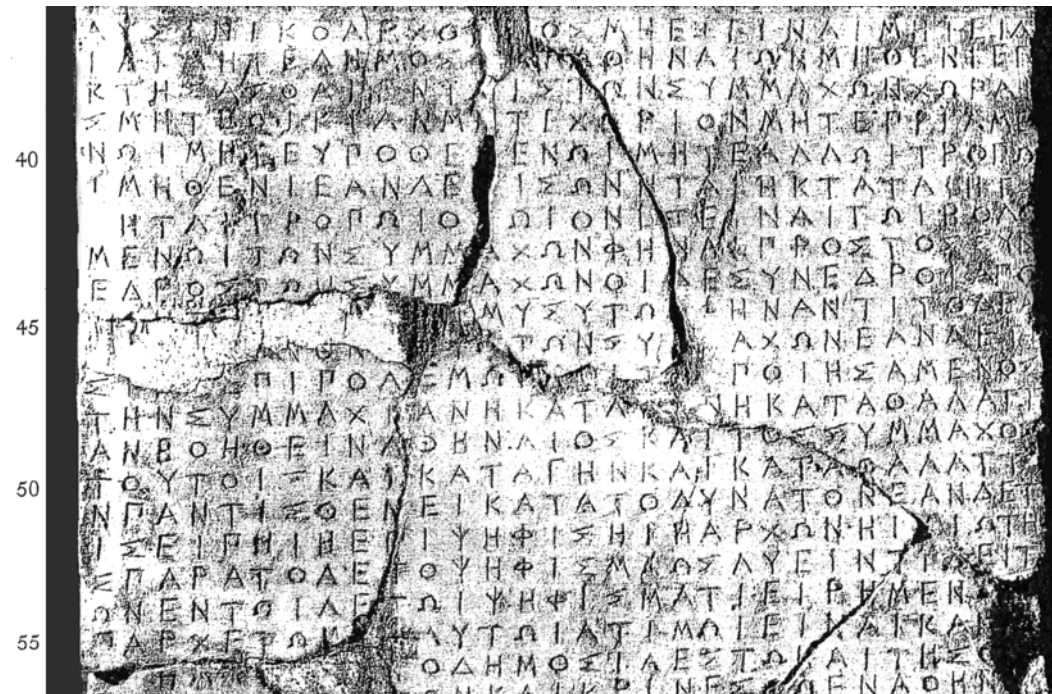 ΣΙΝΙΚΟΑΡΧΟ ΟΣΜΗΕΞΕΙΝΑΙΜΗΤΕΙΔ
ΙΑΙΜΗΤΕΔΗΜΟΣ ΑΘΗΝΑΙΩΝΜΗΘΕΝΙΕΓ
ΚΤΗΣΑΣΘΑΙΕΝΤ ΙΣΤΩΝΣΥΜΜΑΧΩΝΧΩΡΑΙ
ΣΜΗΤΕΟΙΚΙΑΝΜΗΤΕΧΩΡΙΟΝΜΗΤΕΠΡΙΑΜΕ
ΝΩΙΜΗΤΕΥΠΟΘΕΜΕΝΩΙΜΗΤΕΑΛΛΩΙΤΡΟΠΩ
ΙΜΗΘΕΝΙΕΑΝΔΕΤΙΣΩΝΗΤΑΙΗΚΤΑΤΑΙΗΤ
ΙΘΗΤΑΙΤΡΟΠΩΙΟΤΩΙΟΝΕΞΕΙΝΑΙΤΩΙΒΟΛΟ
ΜΕΝΩΙΤΩΝΣΥΜΜΑΧΩΝΦΗΝΑΙΠΡΟΣΤΟΣΣΥΝ
ΕΔΡΟΣΤΩΝΣΥΜΜΑΧΩΝΟΙΔΕΣΥΝΕΔΡΟΙΑΠΟ
ΜΥΣΥΤΩΙ ΗΝΑΝΤΙΤΟΔΕΑ
ΤΩΝΣΥ ΑΧΩΝΕΑΝΔΕ
Σ ΠΙΠΟΛΕΜΩΙ ΠΟΙΗΣΑΜΕΝΟΣ
ΤΗΝΣΥΜΜΑΧΙΑΝΗΚΑΤΑ ΝΗΚΑΤΑΘΑΛΑΤΤ
ΑΝΒΟΗΘΕΙΝΑΘΗΝΑΙΟΣΚΑΙΤΟΣΣΥΜΜΑΧΟΣ
ΤΟΥΤΟΙΣΚΑΙΚΑΤΑΓΗΝΚΑΙΚΑΤΑΘΑΛΑΤΤΑ
ΝΠΑΝΤΙΣΘΕΝΕΙΚΑΤΑΤΟΔΥΝΑΤΟΝΕΑΝΔΕΤ
ΙΣΕΙΠΗΙΗΕΠΙΨΗΦΙΣΗΙΗΑΡΧΩΝΗΙΔΙΩΤΗ
ΣΠΑΡΑΤΟΔΕΤΟΨΗΦΙΣΜΑΩΣΛΥΕΙΝΤΙΔΕΙΤ
ΩΝΕΝΤΩΙΔΕΤΩΙΨΗΦΙΣΜΑΤΙΕΙΡΗΜΕΝ
ΠΑΡΧΕΤΩΜΕΝΑΥΤΩΙΑΤΙΜΩΙΕΙΝΑΙΚΑΙ
ΟΔΗΜΟΣΙΑΕΣΤΩΚΑΙΤΗΣΘ
40
45
50
55